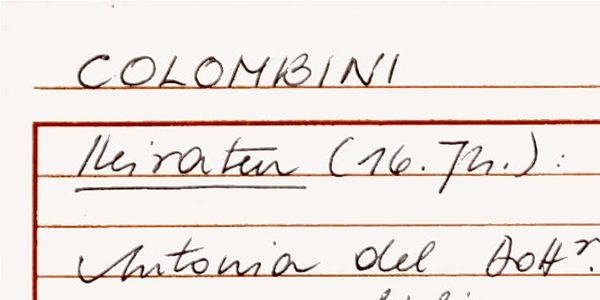 COLOMBINI
Heiraten (16. Jh.):
Antonia del Dottr.